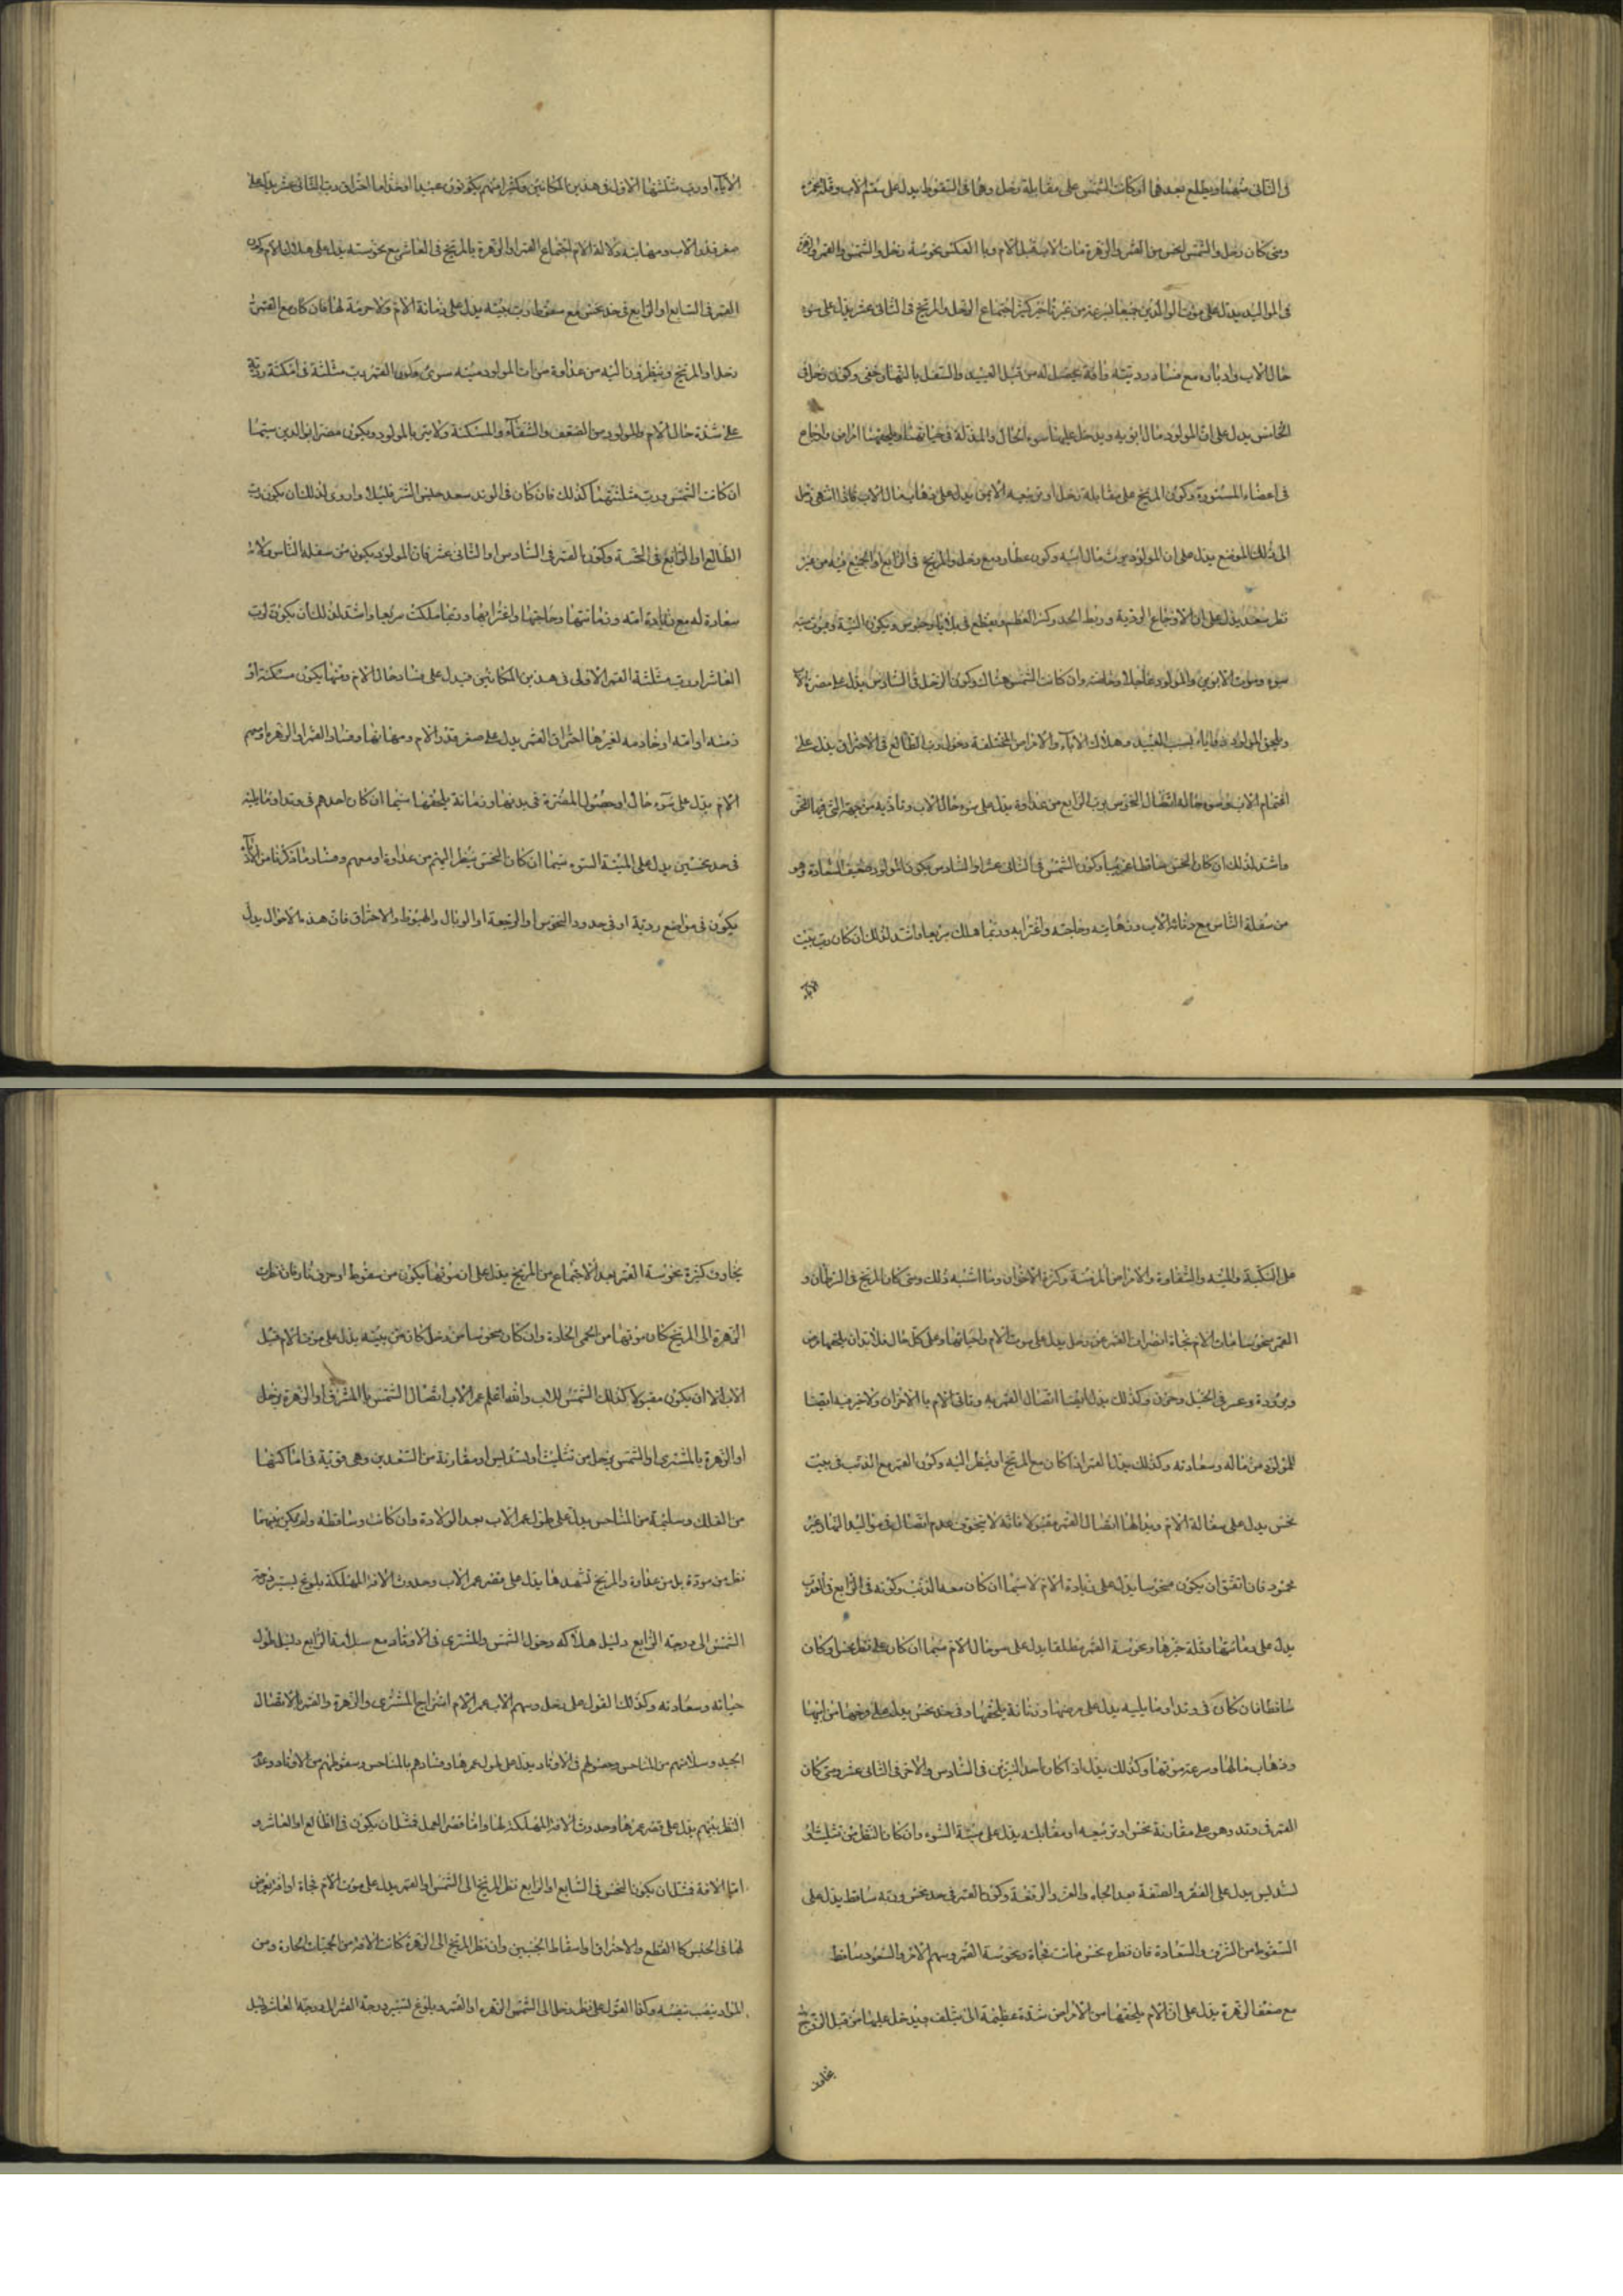 فى الثانى منهما ويطلع بعدهما او كانت الشمس على مقابلة زحل وهما فى السقوط يدل على سقم الاب وقلة عمره
ومتى كان زحل والشمس انحس من القمر والزهرة مات الاب قبل الام وبالعكس نحوسة زحل والشمس والقمر والزهرة
فى المواليد يدل على موت الوالدين جميعا بسرعة من غير تأخير كثير اجتماع الزحل والمريخ فى الثانى عشر يدل على سوء
حال الاب وادباره مع فساد رديئه وآفة تحصل له من قبل العبيد والسفل بالنهار خفى وكون زحل فى
الخامس يدل على ان المولود مال ابويه ويدخل عليهما سوء الحال والمذلة فى حياتهما ويلحقهما امراض واوجاع
فى اعضاء المستورة وكون المريخ على مقابلة زحل او تربيعه الايمن يدل على ذهاب مال الاب فاذا انتهى زحل
الى ذلك الموضع يدل على ان المولود يرث مال ابيه وكون عطارد مع زحل والمريخ فى الرابع او الجميع فيه من غير
نظر سعد يدل على ان الاوجاع الردية وربط الجسد وكسر العظم ويقطع فى بلايا وحبوس ويكون الميتة ويموت ميتة
سوء وموت الابوين والمولود عاجلا وان كانت الشمس هناك وكون الزحل فى السادس يدل على مضرة الآباء
ويلحق المولود بلايا بسبب العبيد وهلاك الآباء والامراض المختلفة دخول رب الطالع فى الاحتراق يدل على
اغتمام الاب وسوء حاله اتصال النحوس برب الرابع من عداوة يدل على سوء حال الاب وتأذيه من جهة التى فيها النحس
واشد لذلك ان كان النحس ساقطا غريبا وكون الشمس فى الثانى عشر او السادس يكون المولود ضعيف السعادة وهو
من سفلة الناس مع دنائة الاب وزمانته وحاجته واغترابه وربما هلك سريعا واشد لذلك ان كان رب بيت
الآباء او رب مثلثتها الاول فى هذين المكانين وكثير منهم يكونون عبيدا او خداما احتراق رب الثانى عشر يدل على
صغر قدر الاب ومهانته دلالة الام اجتماع القمر او الزهرة بالمريخ فى العاشر مع نحوسته يدل على هلاك الام وكون
القمر فى السابع او الرابع فى حد نحس مع سقوط رب بيته يدل على زمانة الام ولا حرمة لها فان كان مع القمر
زحل او المريخ وينظرون اليه من عداوة مات المولود ميتة سوء حلول القمر رب مثلثة فى امكنة ردية
على شدة حال الام والمولود من الضعف والشقاء والمسكنة ولا يتربى المولود ويكون مضرا بوالدين سيما
ان كانت الشمس ورب مثلثتهما كذلك فان كان فى الوتد سعد حبس الشر قليلا واردى لذلك ان يكون رب
الطالع او الرابع فى الخسة وكون القمر فى السادس او الثانى عشر فان المولود يكون من سفلة الناس ولا
سعادة له مع دنائة امه وزمانتها وحاجتها واغترابها وربما هلكت سريعا واشد لذلك ان يكون رب
العاشر او رب مثلثة القمر الاولى فى هذين المكانين فيدل على فساد حال الام وربما يكون مسكنة او
زمنة او امة او خادمة لغيرها احتراق القمر يدل على صغر قدر الام ومهانتها وفساد القمر او الزهرة او سهم
الام يدل على سوء حال او حصول المضرة فى بدنها وزمانة يلحقها سيما ان كان احدهم فى وتد او ما يليه
فى حد نحسين يدل على الميتة السوء سيما ان كان النحس ينظر اليهم من عداوة او معهم وفساد ما ذكرنا من الآباء
يكون فى مواضع ردية او فى حدود النحوس او الرجعة او الوبال والهبوط والاحتراق فان هذه الاحوال يدل
على النكبة والميتة والشقاوة والامراض المزمنة وكثرة الاحزان وما اشبه ذلك ومتى كان المريخ فى السرطان و
القمر منحوسا ماتت الام فجأة انصراف القمر عن زحل يدل على موت الام واحيانها وعلى كل حال فلا بد ان يلحقها مرض
وبرودة وعسر فى الحبل وحزن وكذلك يدل ايضا اتصال القمر به وتأتى الام بالاحزان ولا خير فيه ايضا
للمولود من ماله وسعادته وكذلك يدل القمر اذا كان مع المريخ او ينظر اليه وكون القمر مع الذنب فى بيت
نحس يدل على سفالة الام ويدلها اتصال القمر مقبولا فانه لا يتخوف عدم اتصال فى مواليد النهار غير
محمود فان اتفق ان يكون منحوسا يدل على زيادة الام لا سيما ان كان معه الذنب وكونه فى الرابع فى العقرب
يدل على دنائتها وقلة خيرها ونحوسة القمر مطلقا يدل على سوء حال الام سيما ان كان على نظر نحس وكان
ساقطا فان كان فى وتد او ما يليه يدل على مرضها وزمانة يلحقها وفى حد نحس يدل على
وذهاب مالها وسرعة موتها وكذلك يدل اذا كان احد النيرين فى السادس والآخر فى الثانى عشر ومتى كان
القمر فى وتد وهو على مقارنة نحس او تربيعه او مقابلته يدل على ميتة السوء وان كان النظر من تثليث او
تسديس يدل على الفقر والضعة بعد الجاه والعز والرفعة وكون القمر فى حد نحس وربه ساقط يدل على
السقوط من الشرف والسعادة فان نظره نحس ماتت فجأة ونحوسة القمر وسهم الام والسعود ساقط
مع ضعف الزهرة يدل على ان الام يلحقها من الامراض شدة عظيمة الى ان يتلف ويدخل عليها من قبل الزوج
مخاوف
مخاوف كثيرة نحوسة القمر بعد الاجتماع من المريخ يدل على ان موتها يكون من سقوط او حرق نار فان نظرت
الزهرة الى المريخ كان موتها من الحمى الحادة وان كان منحوسا من زحل كان من بيته يدل على موت الام قبل
الاب الا ان يكون مقبولا كذلك الشمس للاب والله اعلم عمر الاب اتصال الشمس بالمشترى او الزهرة بزحل
او الزهرة بالمشترى او الشمس بزحل من تثليث او تسديس او مقارنة من السعدين وهى قوية فى اماكنها
من الفلك وسليمة من المناحس يدل على طول عمر الاب بعد الولادة وان كانت ساقطة ولم يكن بينهما
نظر من مودة بل من عداوة والمريخ تشهدها يدل على قصر عمر الاب وحدوث الآفة المهلكة بلوغ تسيير درجة
الشمس الى درجة الرابع دليل هلاكه دخول الشمس والمشترى فى الاوتاد مع سلامة الرابع دليل طول
حياته وسعادته وكذلك القول على زحل وسهم الاب عمر الام امتزاج المشترى والزهرة والقمر بالاتصال
الجيد وسلامتهم من المناحس وحصولهم فى الاوتاد يدل على طول عمرها وفسادهم بالمناحس وسقوطهم من الاوتاد وعدم
النظر بينهم يدل على قصر عمرها وحدوث الآفة المهلكة لها واما قصر العمل فمثل ان يكون فى الطالع او العاشر و
اما الآفة فمثل ان يكون النحس فى السابع او الرابع نظر المريخ الى الشمس او القمر يدل على موت الام فجأة او امر يعرض
لها فى الحبس كالقطع والاحتراق واسقاط الجنين وان نظر المريخ الى الزهرة كانت الآفة من الحميات الحادة ومن
المولد نفسه وكذا القول على نظر زحل الى الشمس الزهرة او القمر وبلوغ تسيير درجة القمر الى درجة العاشر دليل